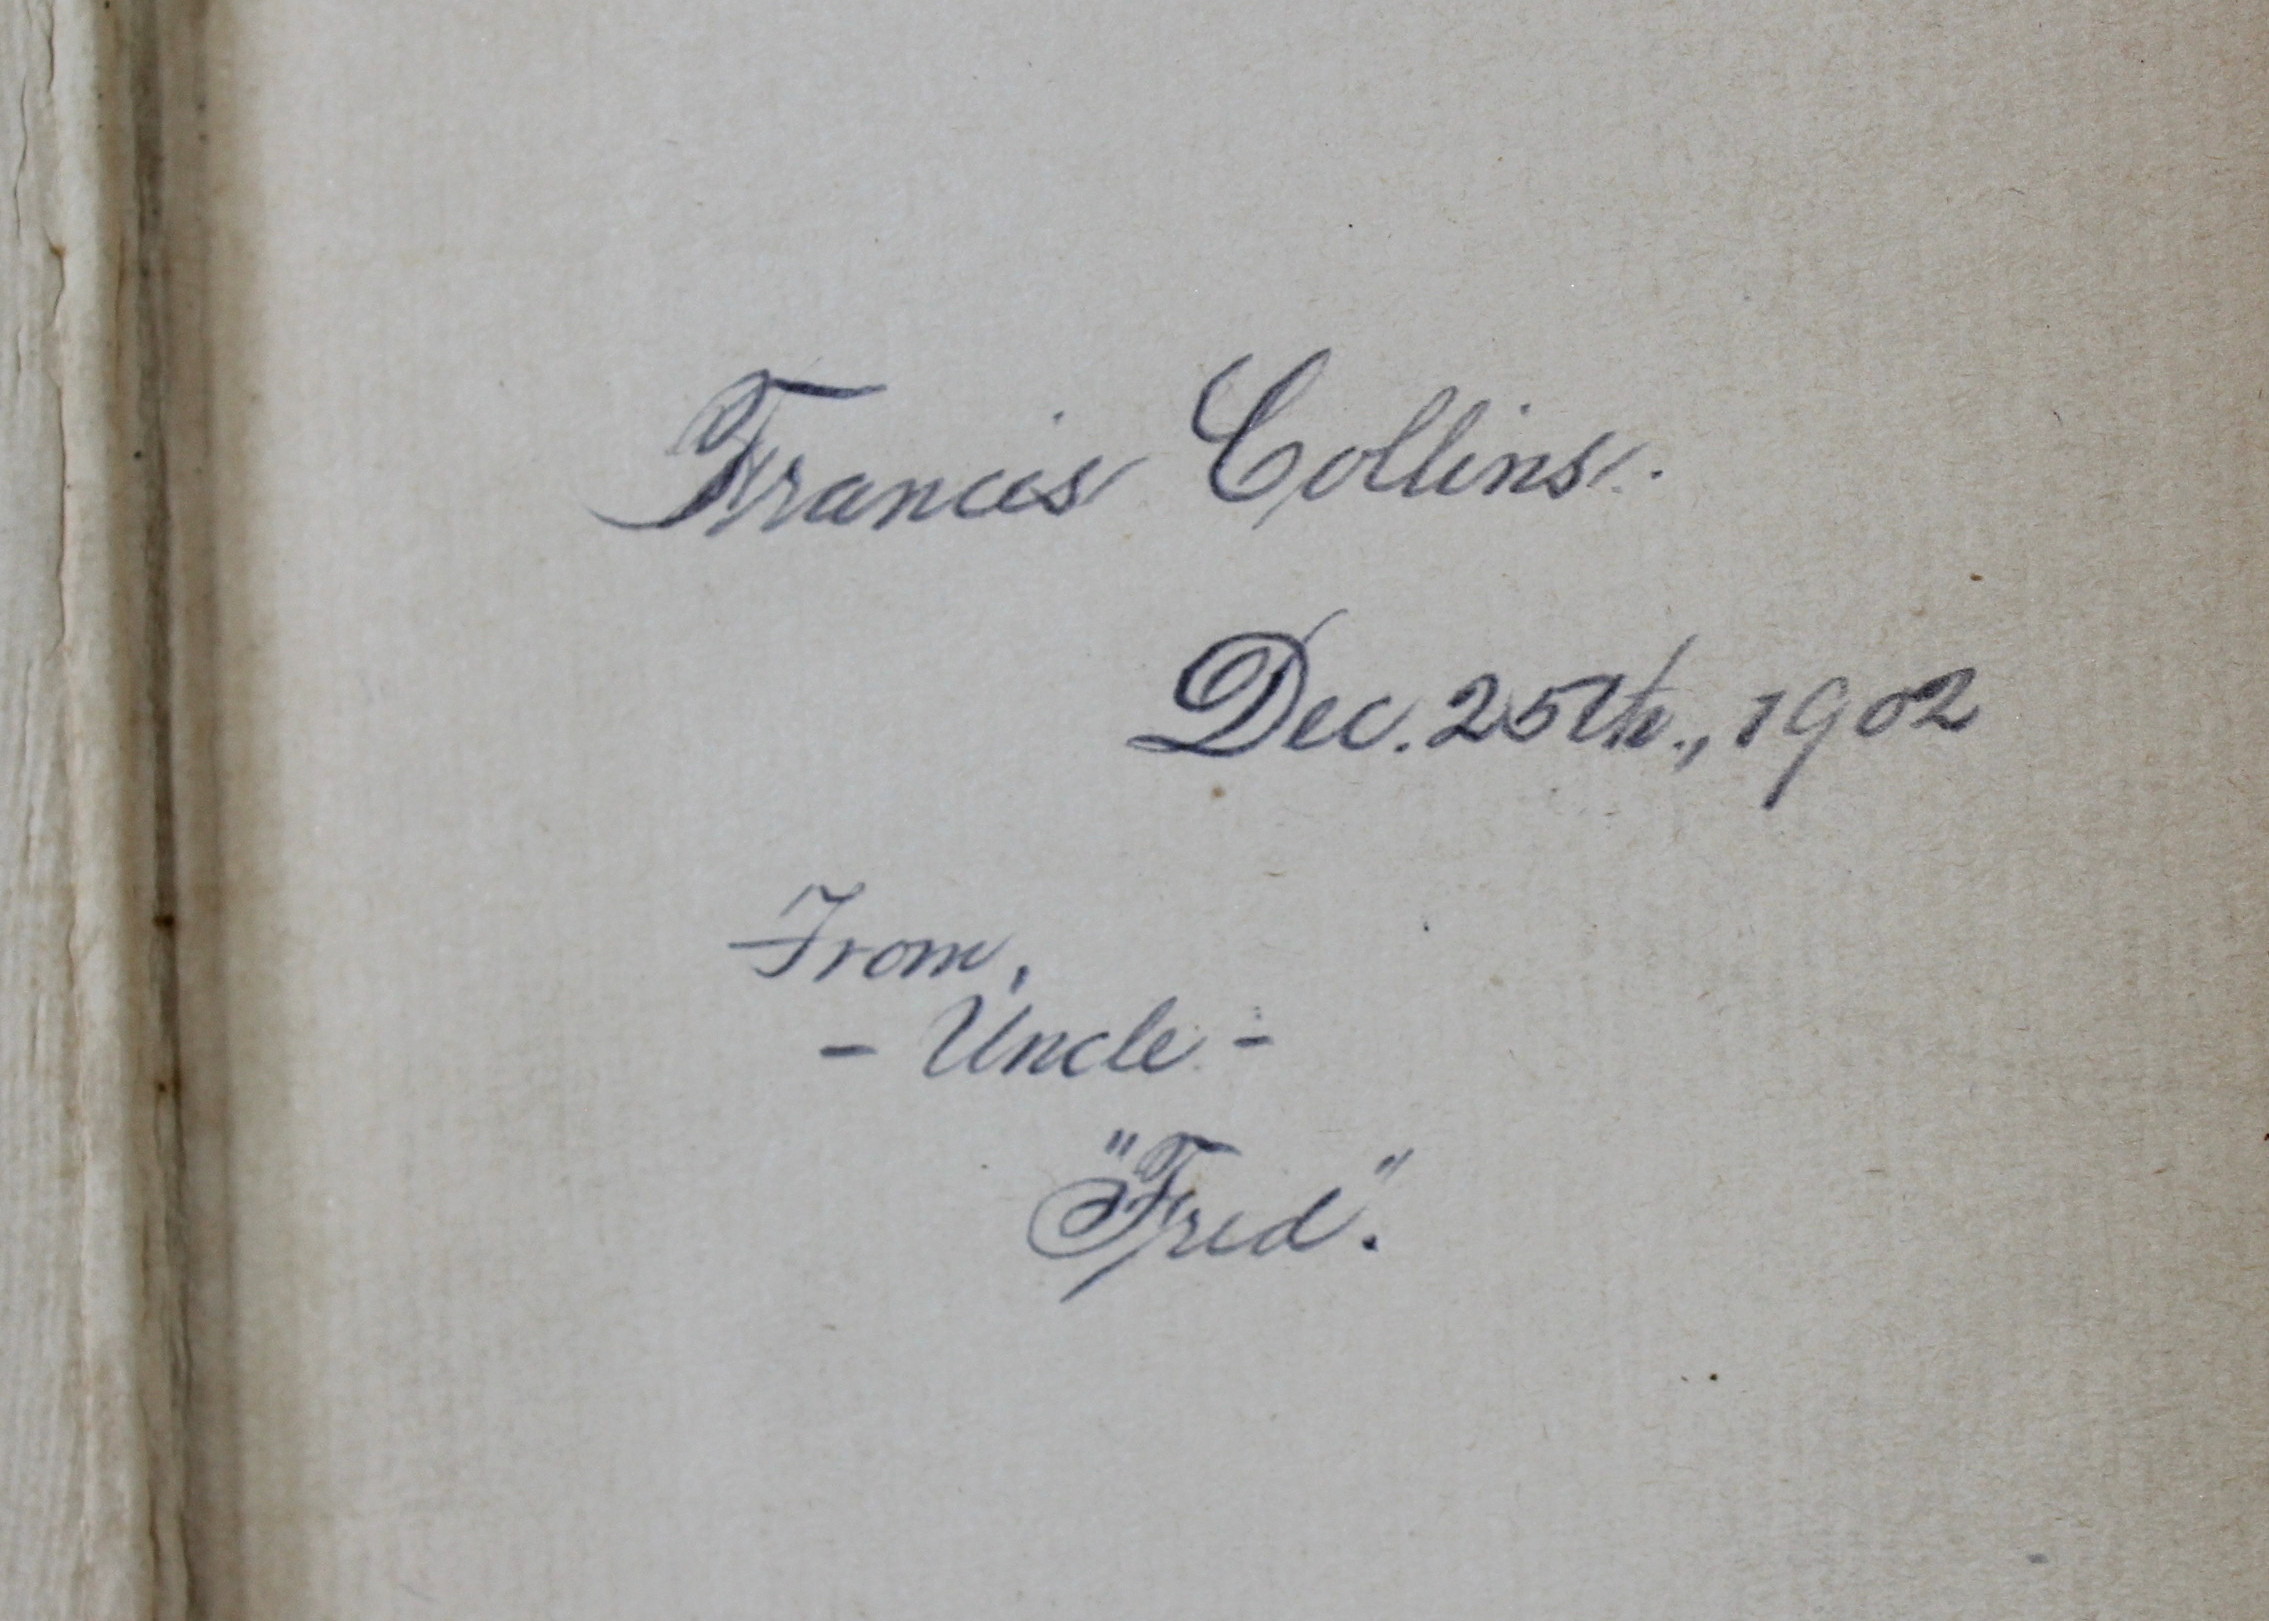 Francis Collins.
Dec. 25th., 1902
From,
- Uncle -
"Fred".